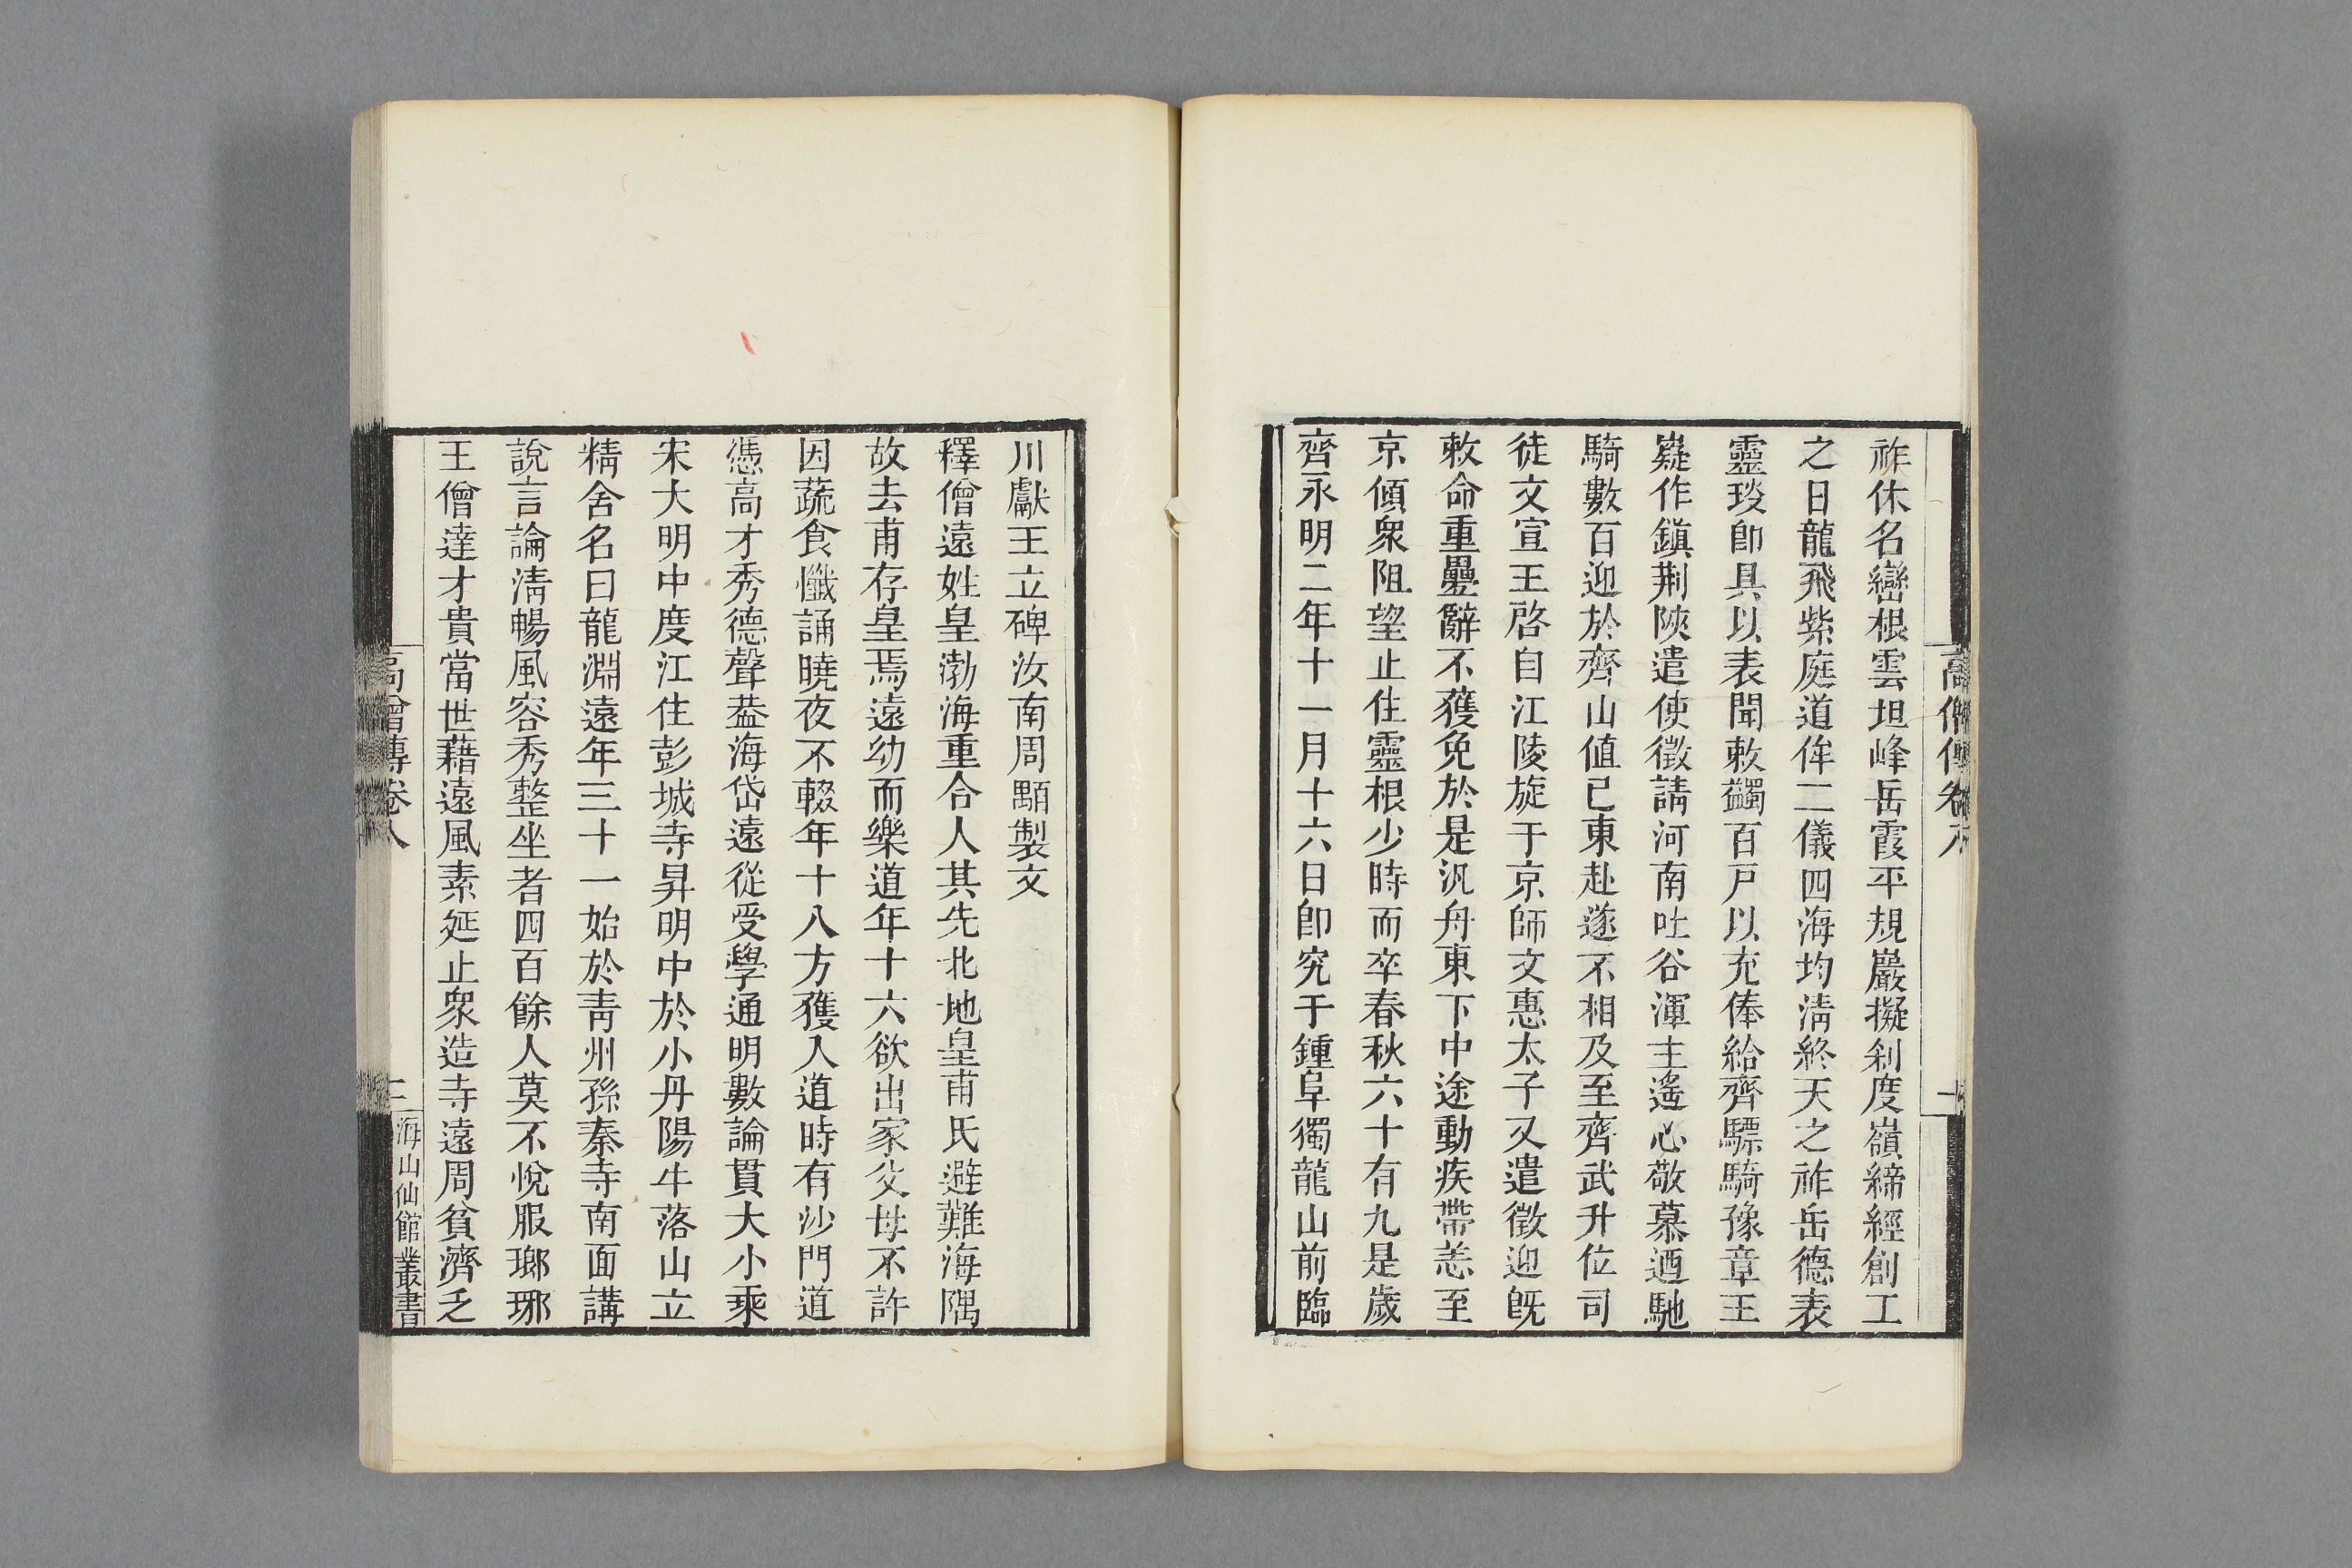 高僧傳卷八
祚休名巒根雲坦峰岳霞平規巖擬刹度嶺締經創工
之日龍飛紫庭道侔二儀四海均淸終天之祚岳德表
靈琰卽具以表聞敕蠲百戸以充俸給齊驃騎豫章王
嶷作鎮荆陝遣使徵請河南吐谷渾主遙心敬慕迺馳
騎數百迎於齊山値已東赴遂不相及至齊武升位司
徒文宣王啓自江陵旋于京師文惠太子又遣徵迎旣
敕命重疊辭不獲免於是汎舟東下中途動疾帶恙至
京傾衆阻望止住靈根少時而卒春秋六十有九是歲
齊永明二年十一月十六日卽窆于鍾阜獨龍山前臨
川獻王立碑汝南周顒製文
釋僧遠姓皇渤海重合人其先北地皇甫氏避難海隅
故去甫存皇焉遠幼而樂道年十六欲出家父母不許
因蔬食懺誦曉夜不輟年十八方獲入道時有沙門道
憑高才秀德聲葢海岱遠從受學通明數論貫大小乘
宋大明中度江住彭城寺昇明中於小丹陽牛落山立
精舍名曰龍淵遠年三十一始於靑州孫秦寺南面講
說言論淸暢風容秀整坐者四百餘人莫不悅服瑯琊
王僧達才貴當世藉遠風素延止衆造寺遠周貧濟乏
高僧傳卷八
二
海山仙館叢書